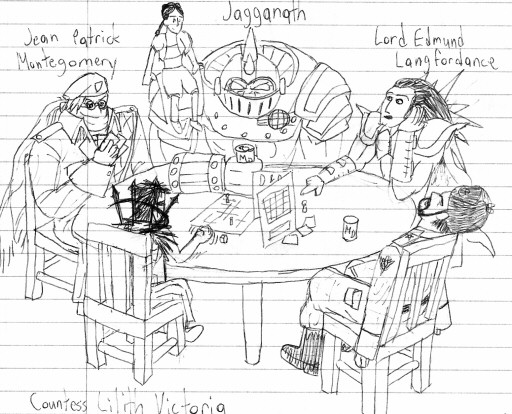 Jagganath
Jean Patrick
Montegomery
Lord Edmund
Langfordance
Countess Lilith Victoria